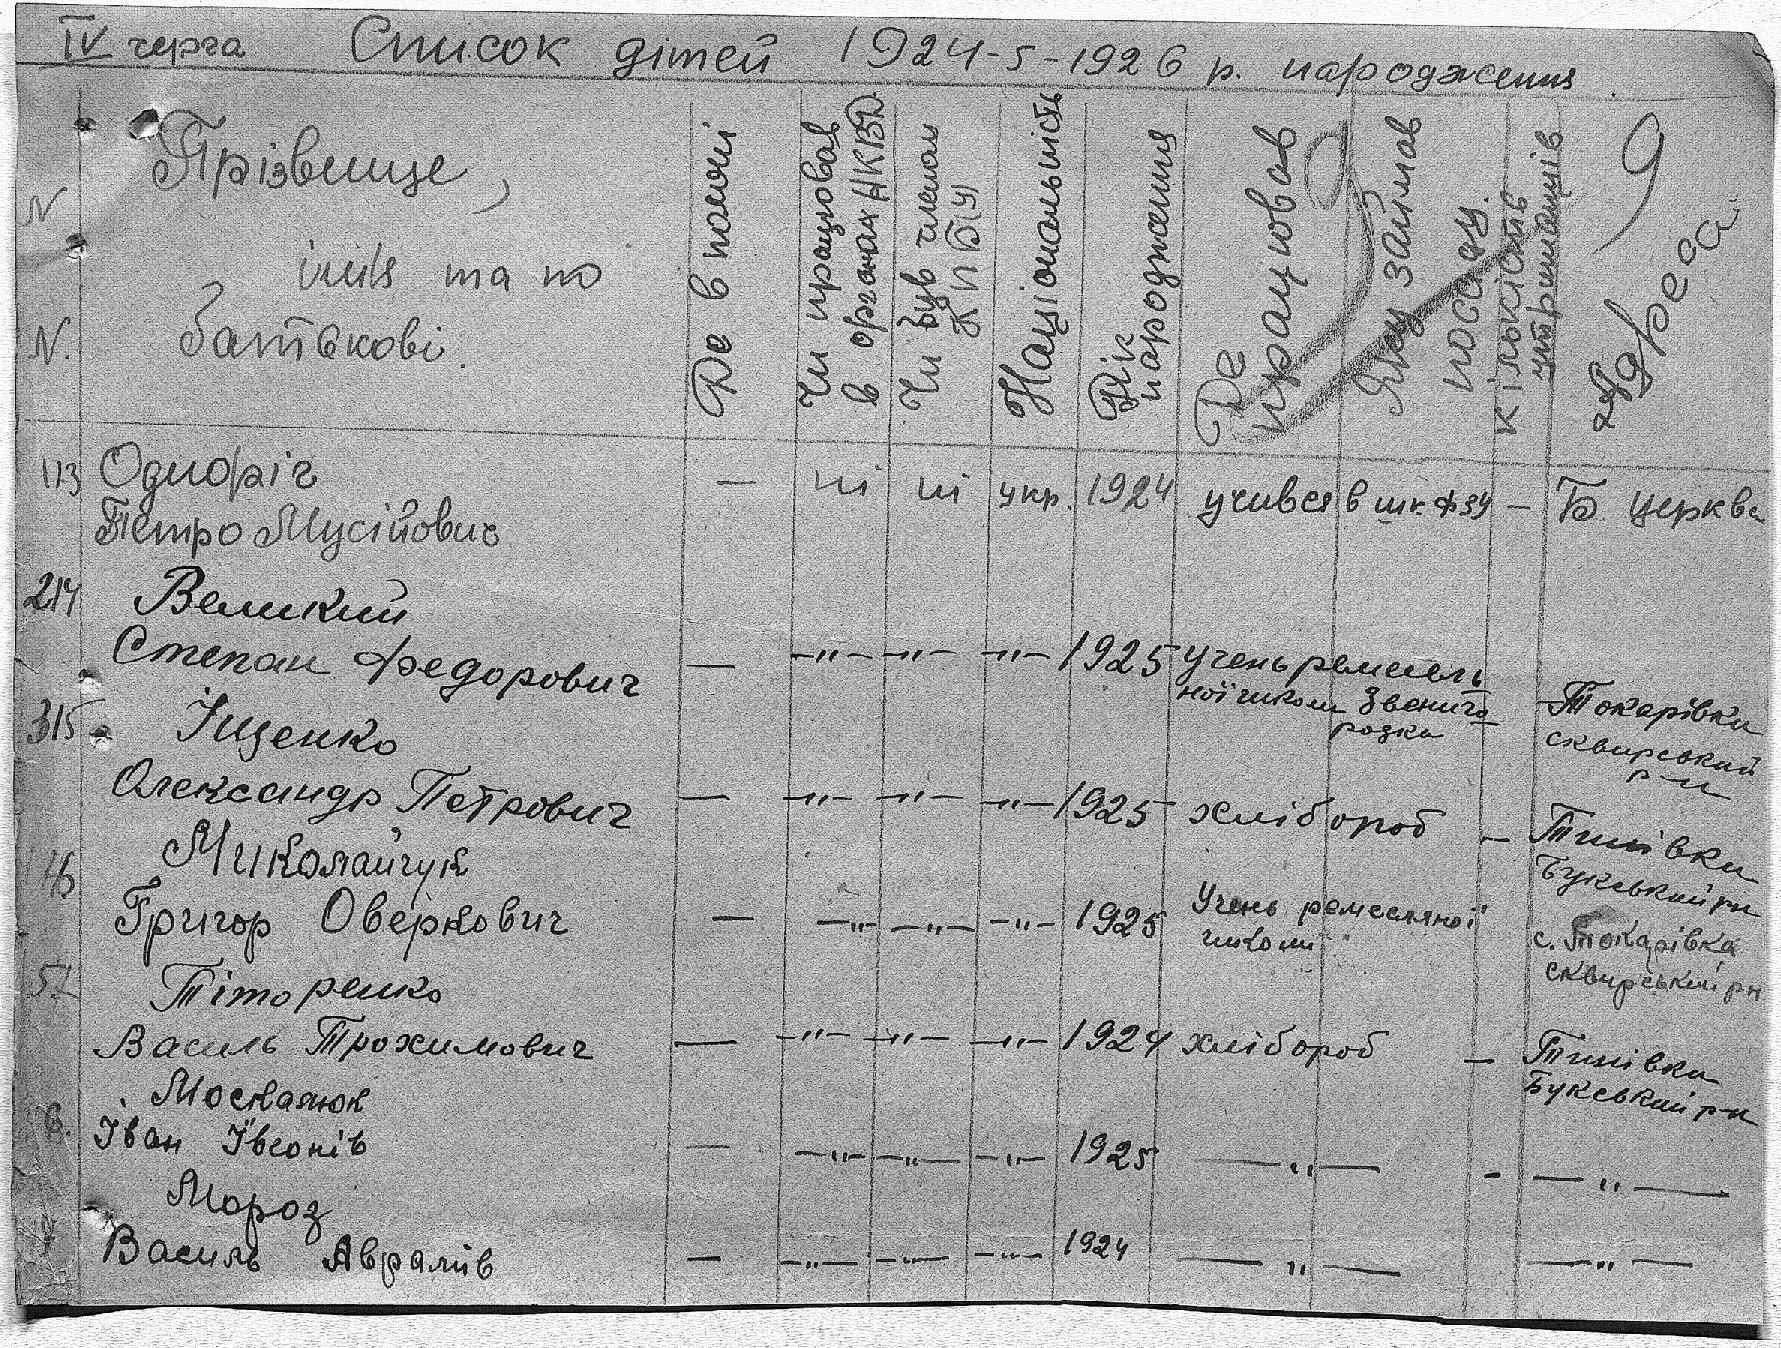 IV черга Список дітей 1924-5-1926 р. народження
N N. Прізвище, імія та по батькові
Де в полоні
Чи працював в органах НКВД
Чи був членом КПБ(у)
Національність
Рік народження
Де працював
Яку займав посаду.
кількість утриманців
Адреса.
9
113 Одноріг
Петро Мусійович — ні ні укр. 1924 учився в шк. ФЗУ — Б церква
214 Великий
Степан Федорович — —"— —"— —"— 1925 учень ремесель
ної школи Звениго
родка — Токарівка
сквирський
р-н
315 Іщенко
Олександр Петрович — —"— —"— —"— 1925 хлібороб — Тинівка
Букський рн
Миколайчук
Григор Оверкович — —"— —"— —"— 1925 Учень ремесляної
школи с. Токарівка
сквирський рн
Тіторенко
Василь Трохимович — —"— —"— —"— 1924 хлібороб — Тинівка
Букський р-н
6. Москалюк
Іван Івсонів — —"— —"— —"— 1925 —"— - —"—
Мороз
Василь Аврамів — —"— —"— —"— 1924 —"— —"—